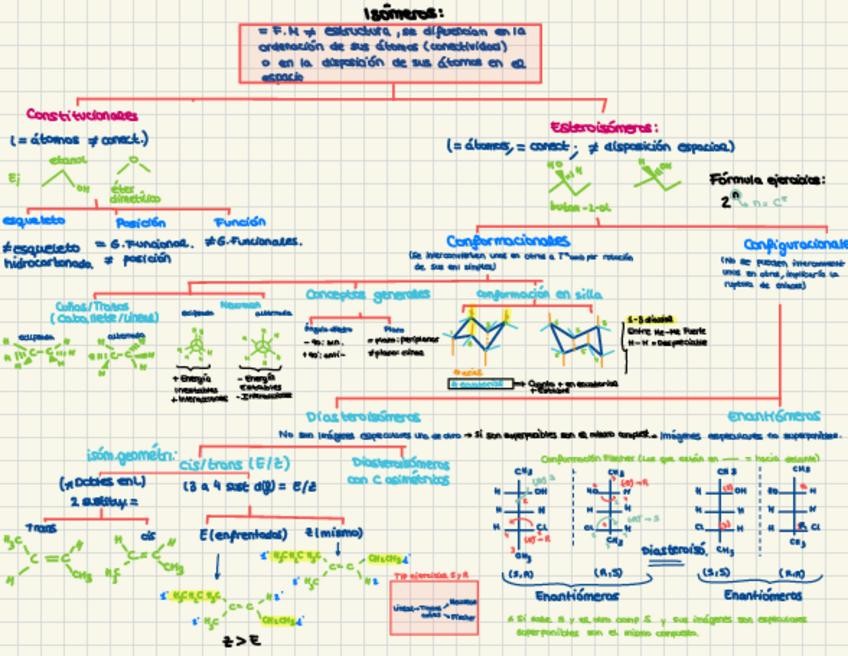 Isómeros:
= F.M ≠ estructura, se diferencian en la
ordenación de sus átomos (conectividad)
o en la disposición de sus átomos en el
espacio
Constitucionales
(= átomos ≠ conect.)
Ej
etanol
OH
O
éter
dimetílico
esqueleto
Posición
Función
≠ esqueleto
hidrocarbonado.
= G. Funcional.
≠ posición
≠ G. Funcionales.
Esteroisómeros:
(= átomos, = conect; ≠ disposición espacial)
HO
H
butan-2-ol
Fórmula ejercicios:
2ⁿ
n = Cˣ
Conformacionales
(Se interconvierten unos en otros a Tª amb por rotación
de sus enl simples)
Configuracionale
(No se pueden interconvert
unos en otros, implicaría la
ruptura de enlaces)
Cuñas/Trazos
(Caballete/Lineas)
Newman
eclipsada
alternada
eclipsada
alternada
+ Energía
inestables
+ Interacciones
- Energía
Estables
- Interacciones
Conceptos generales
Ángulo diedro
Plano
- 90: sin.
+ 90: anti-
= plano: periplanar
≠ plano: clinal
conformación en silla
1-3 diaxial
Entre Me-Me Fuerte
H-H = Despreciable
axiales
ecuatorial
Diasteroisómeros
No son imágenes especulares uno de otro → Si son superponibles son el mismo compuest.
Enantiómeros
Imágenes especulares no superponibles.
isóm. geométri:
cis/trans (E/Z)
Diasteroisómeros
con C asimétricos
2 sustituy. =
(3 a 4 sust d(≠) = E/Z
Trans
cis
H₃C
H
C = C
H
CH₃
H
H
C = C
H₃C
CH₃
E (enfrentados)
Z (mismo)
H₃CH₂C
CH₂CH₃
C = C
H₃C
H₃CH₂C
C = C
H₃C
CH₂CH₃
Z > E
Tip ejercicios S y R
Newman
Fischer
CH₃
CH₃
CH₃
CH₃
H
OH
HO
H
H
OH
HO
H
H
H
H
H
H
H
H
H
H
Cl
Cl
H
Cl
CH₃
CH₃
CH₃
CH₃
(S,R)
(R,S)
Diasteroisó.
(S,S)
(R,R)
Enantiómeros
Enantiómeros
superponibles son el mismo compuesto.